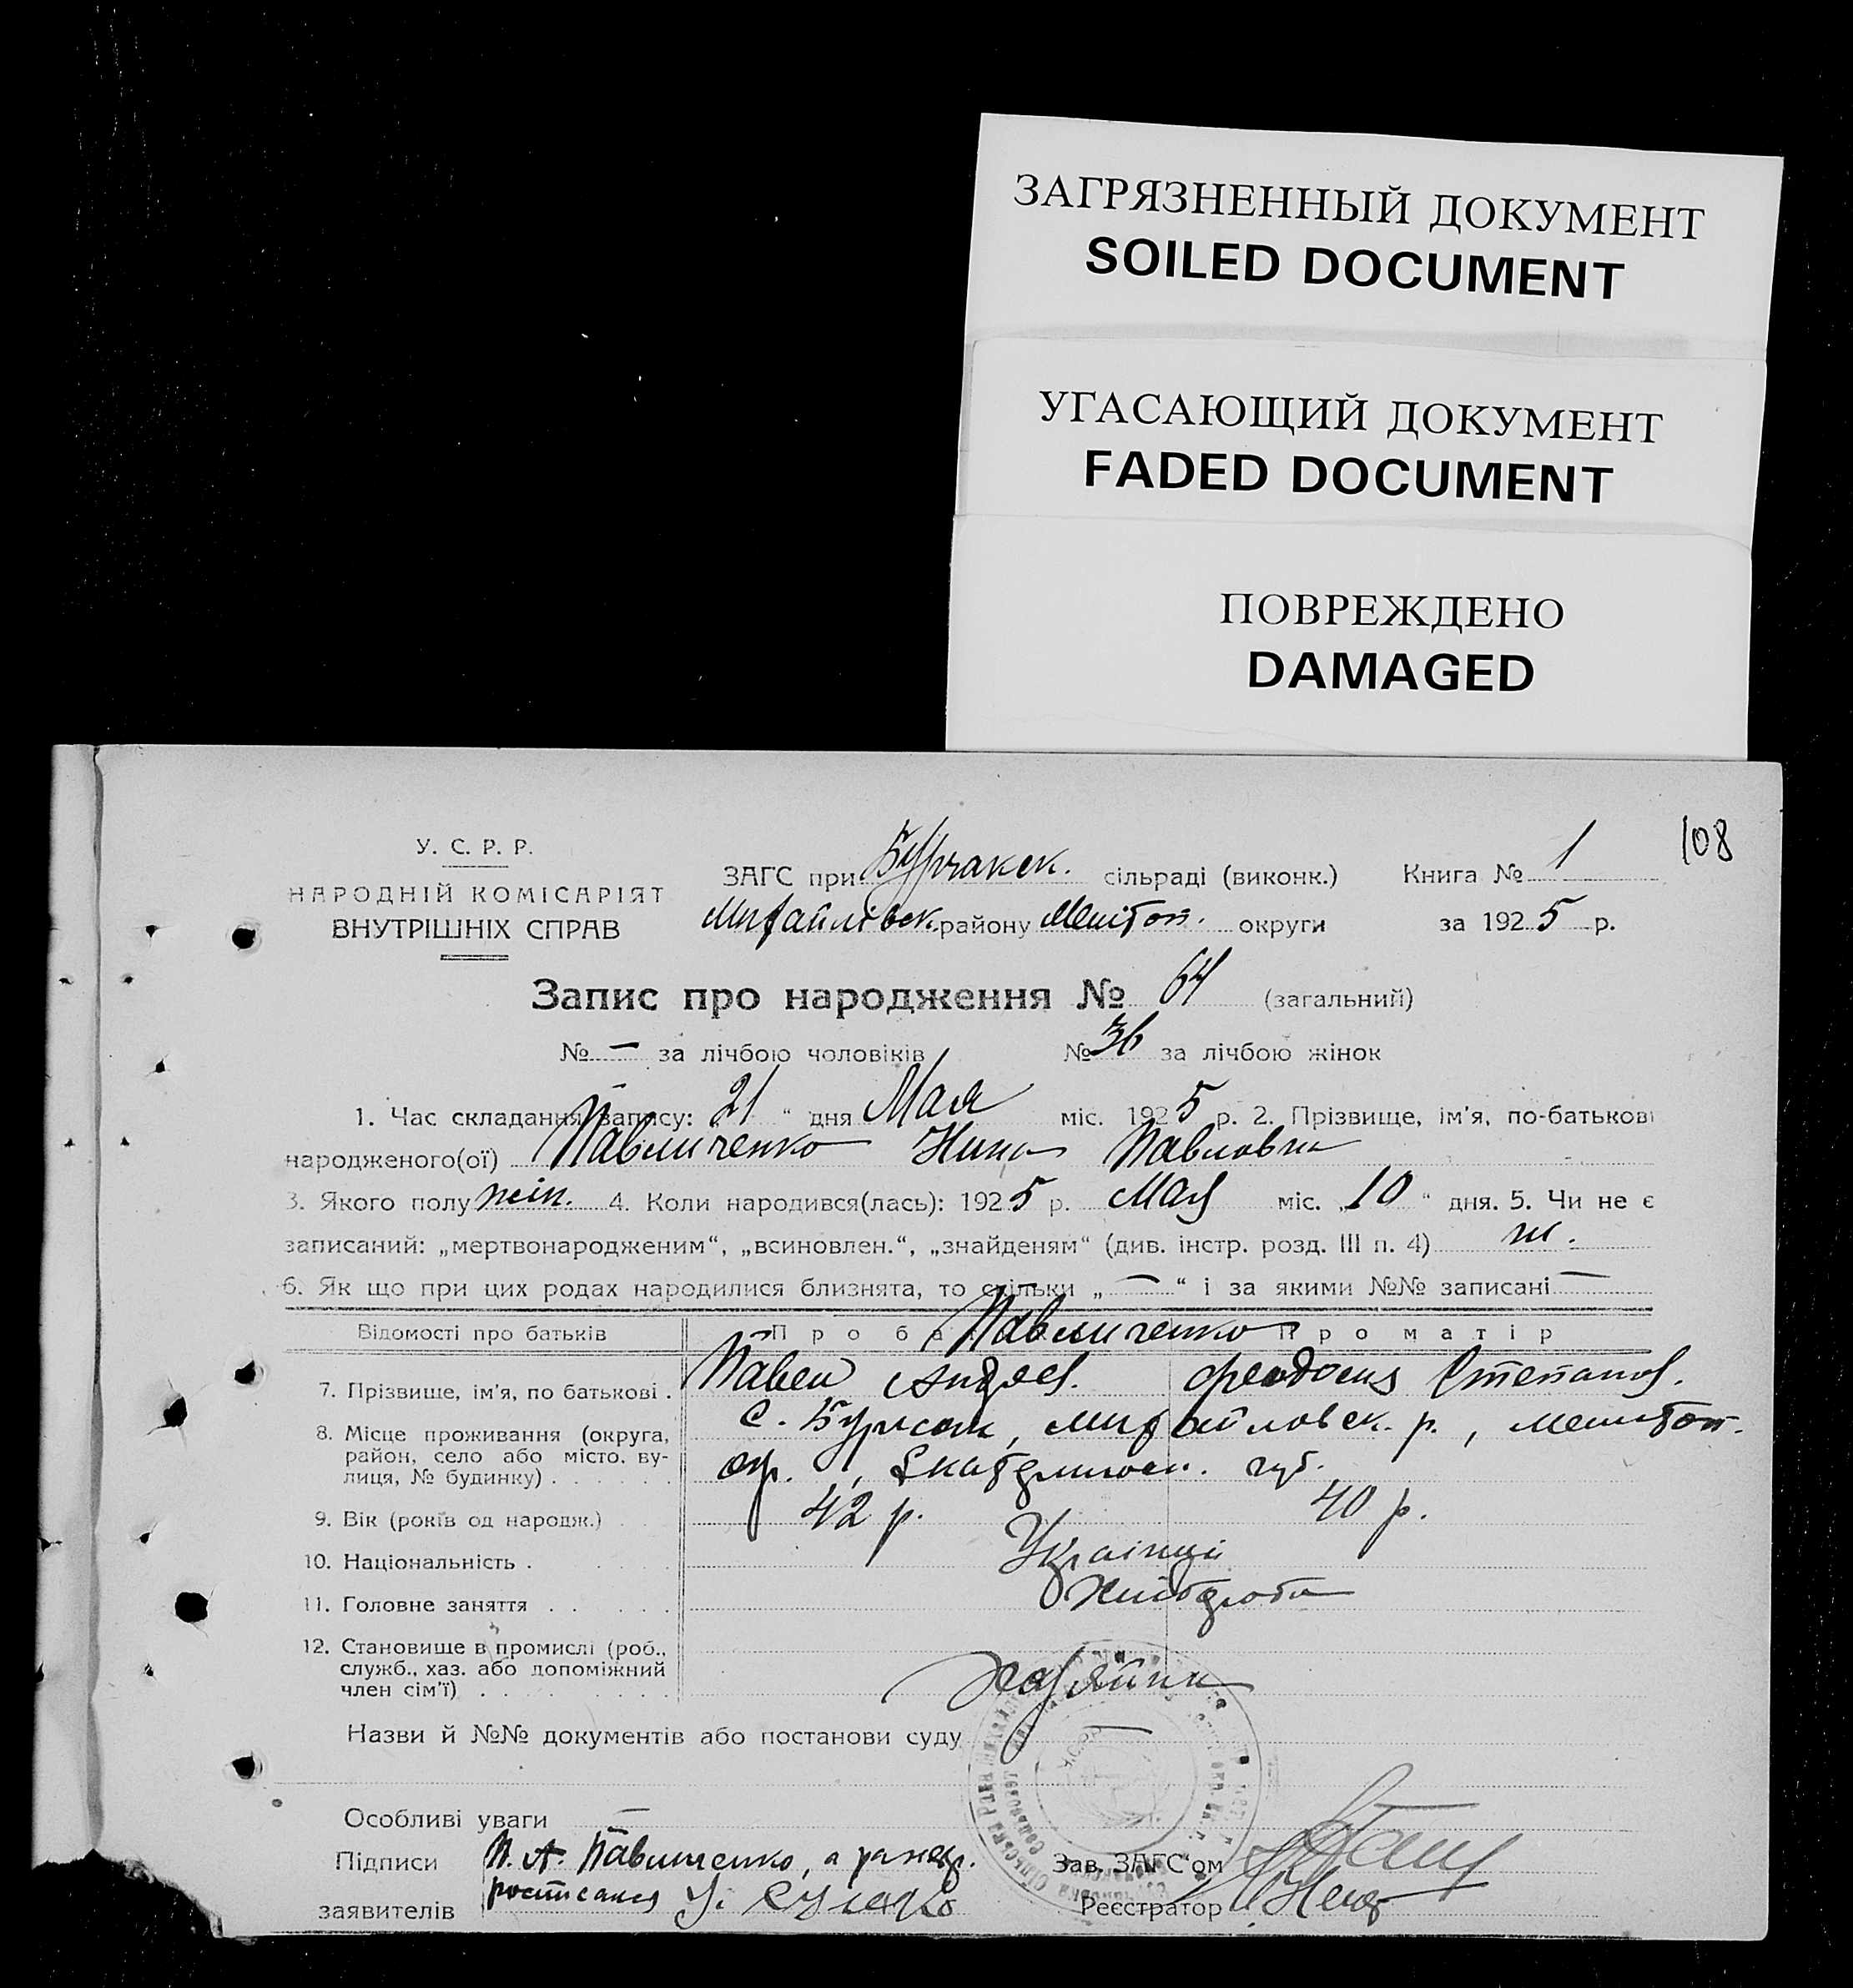 ЗАГРЯЗНЕННЫЙ ДОКУМЕНТ
SOILED DOCUMENT
УГАСАЮЩИЙ ДОКУМЕНТ
FADED DOCUMENT
ПОВРЕЖДЕНО
DAMAGED
108
У. С. Р. Р.
НАРОДНІЙ КОМІСАРІЯТ
ВНУТРІШНІХ СПРАВ
ЗАГС при Бурчакск. сільраді (виконк.) Книга № 1
Михайлівск. району Мелітоп. округи за 1925 р.
Запис про народження № 64 (загальний)
№ — за лічбою чоловіків № 36 за лічбою жінок
1. Час складання запису: 21 " дня Мая міс. 1925 р. 2. Прізвище, ім'я, по-батькові
народженого(ої) Павличенко Нина Павловна
3. Якого полу жін. 4. Коли народився(лась): 1925 р. Мая міс. „10" дня. 5. Чи не є
записаний: „мертвонародженим", „всиновлен.", „знайденям" (див. інстр. розд. III п. 4)
6. Як що при цих родах народилися близнята, то скільки „—" і за якими №№ записані —
Відомості про батьків Про ба Павличенко Про матір
7. Прізвище, ім'я, по батькові . Павел Андреев. Феодосия Степанов.
8. Місце проживання (округа, район, село або місто, вулиця, № будинку) с. Бурчак, Михайловск. р., Мелитоп.
окр., Екатеринос. губ.
9. Вік (років од народж.) 42 р. 40 р.
10. Національність . Українці
11. Головне заняття . . Хлібороби
12. Становище в промислі (роб., служб., хаз. або допоміжний член сім'ї) Хазяйни
Назви й №№ документів або постанови суду —
Особливі уваги —
Підписи П. А. Павличенко, а за негр. Зав. ЗАГС"ом
заявителів росписался Реєстратор